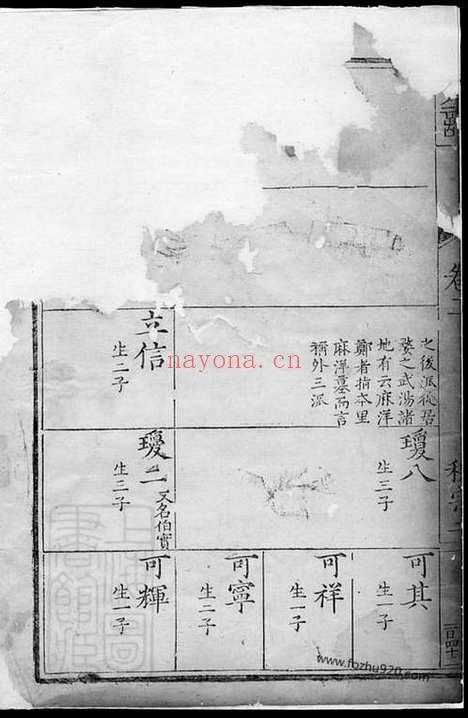 卷二
之後派後居
婺之武湯諸
地有云麻洋
鄭者指本里
麻洋墓而言
稱外三派
立信
生二子
瓊八
生三子
瓊二 又名伯實
生二子
可其
生一子
可祥
生一子
可寧
生二子
可輝
生一子
nayona.cn
www.fozhu920.com